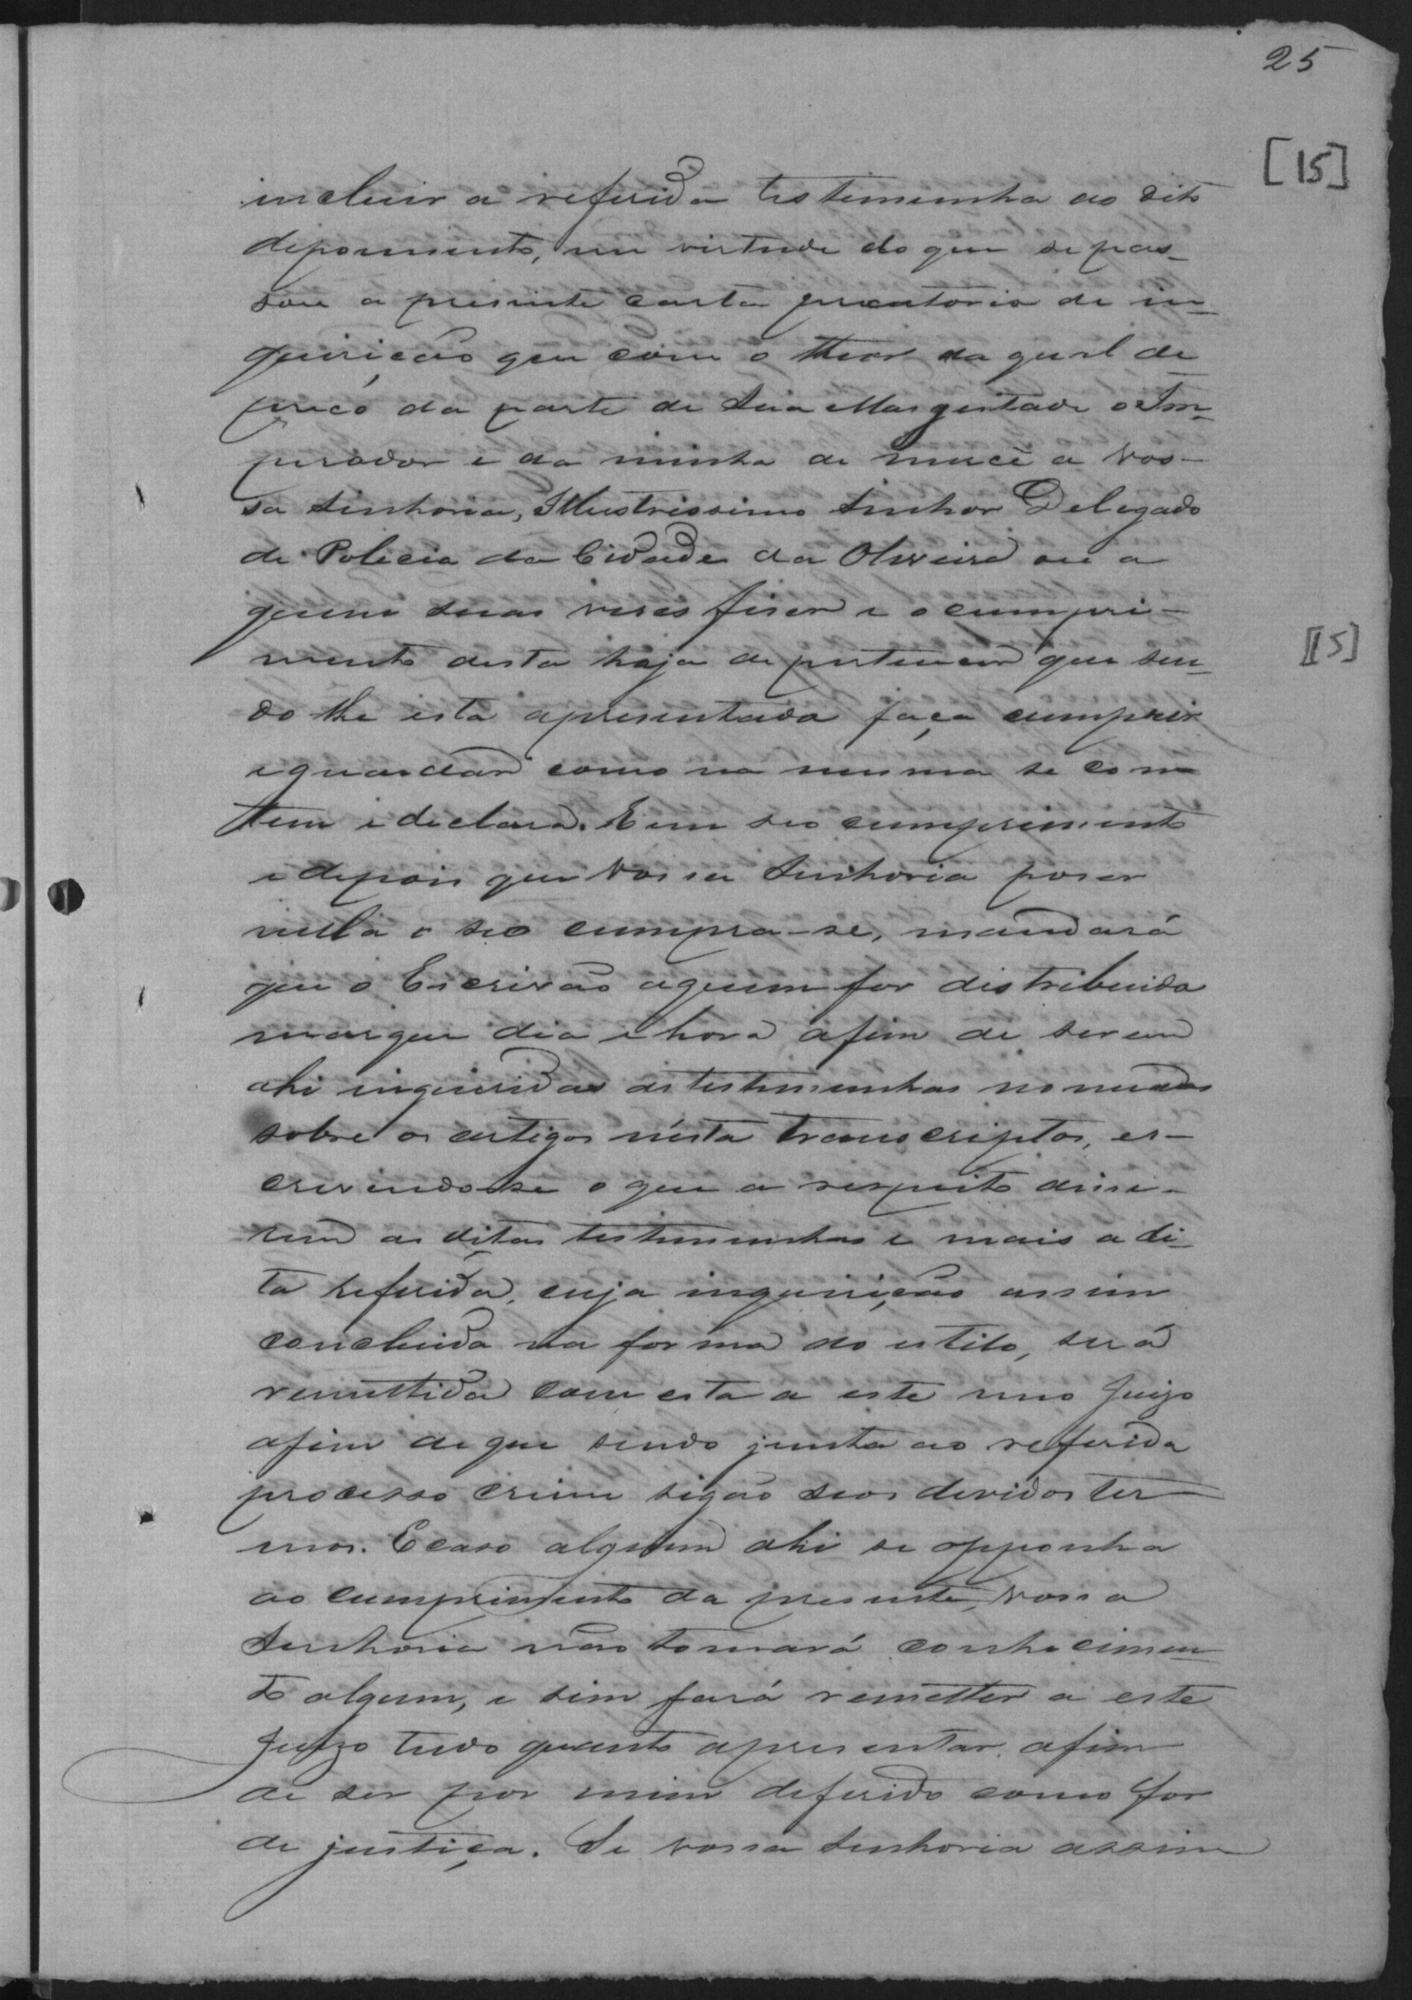 25
[15]
incluir a referida testemunha ao dito
depoimento, em virtude do que se pas-
sou a presente carta precatoria de in-
quirição que com o theor da qual de
preco da parte de Sua Magestade o Im-
perador e da minha de mercê a Vos-
sa Senhoria, Illustrissimo Senhor Delegado
de Policia da Cidade da Oliveira ou a
quem suas veses fiser e o cumpri-
mento desta haja de pertencer que sen-
do lhe esta apresentada faça cumprir
e guardar como na mesma se con
tem e declara. E em seo cumprimento
e depois que Vossa Senhoria poser
nella o seo cumpra-se, mandará
que o Escrivão aquem for distribuida
marque dia e hora afim de serem
ahi inqueridas as testemunhas nomeadas
sobre os artigos nésta transcriptos, es-
crevendo-se o que a respeito disse-
rem as ditas testemunhas e mais a di-
ta referida, cuja inquirição assim
concluida na forma do estilo, será
remettida com esta a este meo Juizo
afim de que sendo junta ao referida
processo crime sigão seos devidos ter
mos. E caso alguem ahi se opponha
ao cumprimento da presente, Vossa
Senhoria não tomará conhecimen-
to algum, e sim fará remetter a este
Juizo tudo quanto apresentar, afim
de ser por mim deferido como for
de justiça. Se vossa Senhoria assim
[15]